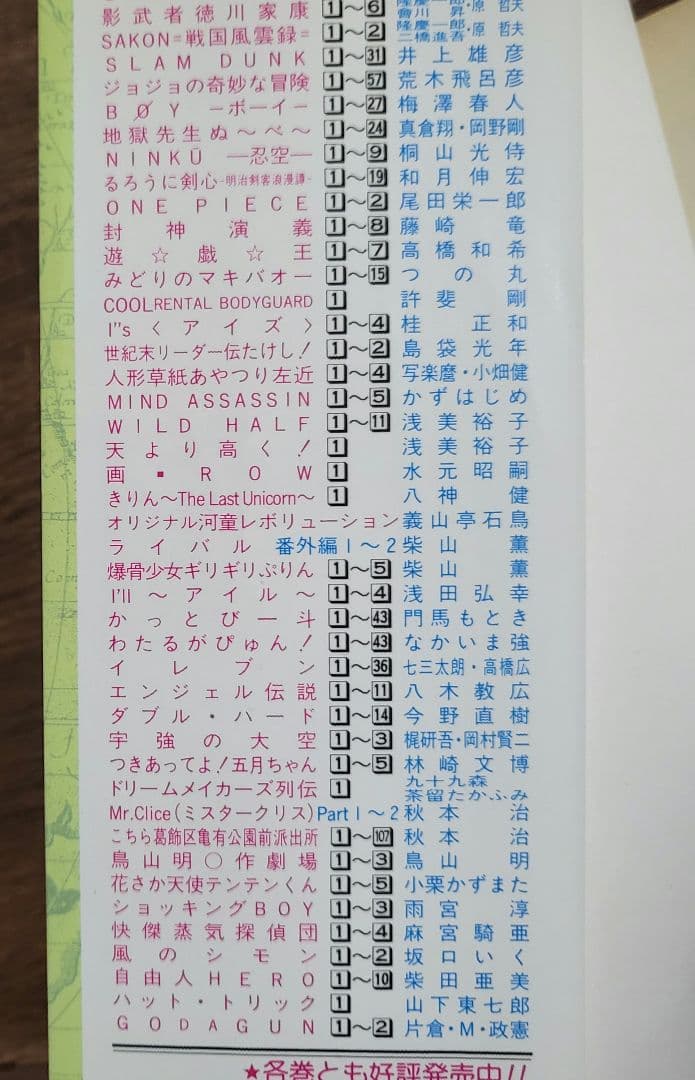 影武者徳川家康 1〜6 隆慶一郎・原哲夫 會川昇
SAKON=戦国風雲録= 1〜2 隆慶一郎・原哲夫 二橋進吾
SLAM DUNK 1〜31 井上雄彦
ジョジョの奇妙な冒険 1〜57 荒木飛呂彦
BØY ―ボーイ― 1〜27 梅澤春人
地獄先生ぬ〜べ〜 1〜24 真倉翔・岡野剛
NINKŪ ―忍空― 1〜9 桐山光侍
るろうに剣心-明治剣客浪漫譚- 1〜19 和月伸宏
ONE PIECE 1〜2 尾田栄一郎
封神演義 1〜8 藤崎竜
遊☆戯☆王 1〜7 高橋和希
みどりのマキバオー 1〜15 つの丸
COOL RENTAL BODYGUARD 1 許斐剛
I"s〈アイズ〉 1〜4 桂正和
世紀末リーダー伝たけし! 1〜2 島袋光年
人形草紙あやつり左近 1〜4 写楽麿・小畑健
MIND ASSASSIN 1〜5 かずはじめ
WILD HALF 1〜11 浅美裕子
天より高く! 1 浅美裕子
画・ROW 1 水元昭嗣
きりん〜The Last Unicorn〜 1 八神健
オリジナル河童レボリューション 義山亭石鳥
ライバル 番外編1〜2 柴山薫
爆骨少女ギリギリぷりん 1〜5 柴山薫
I'll〜アイル〜 1〜4 浅田弘幸
かっとび一斗 1〜43 門馬もとき
わたるがぴゅん! 1〜43 なかいま強
イレブン 1〜36 七三太朗・高橋広
エンジェル伝説 1〜11 八木教広
ダブル・ハード 1〜14 今野直樹
宇強の大空 1〜3 梶研吾・岡村賢二
つきあってよ!五月ちゃん 1〜5 林崎文博
ドリームメイカーズ列伝 1 九十九森 茶留たかふみ
Mr.Clice(ミスタークリス) Part1〜2 秋本治
こちら葛飾区亀有公園前派出所 1〜107 秋本治
鳥山明○作劇場 1〜3 鳥山明
花さか天使テンテンくん 1〜5 小栗かずまた
ショッキングBOY 1〜3 雨宮淳
快傑蒸気探偵団 1〜4 麻宮騎亜
風のシモン 1〜2 坂口いく
自由人HERO 1〜10 柴田亜美
ハット・トリック 1 山下東七郎
GODAGUN 1〜2 片倉・M・政憲
★各巻とも好評発売中!!